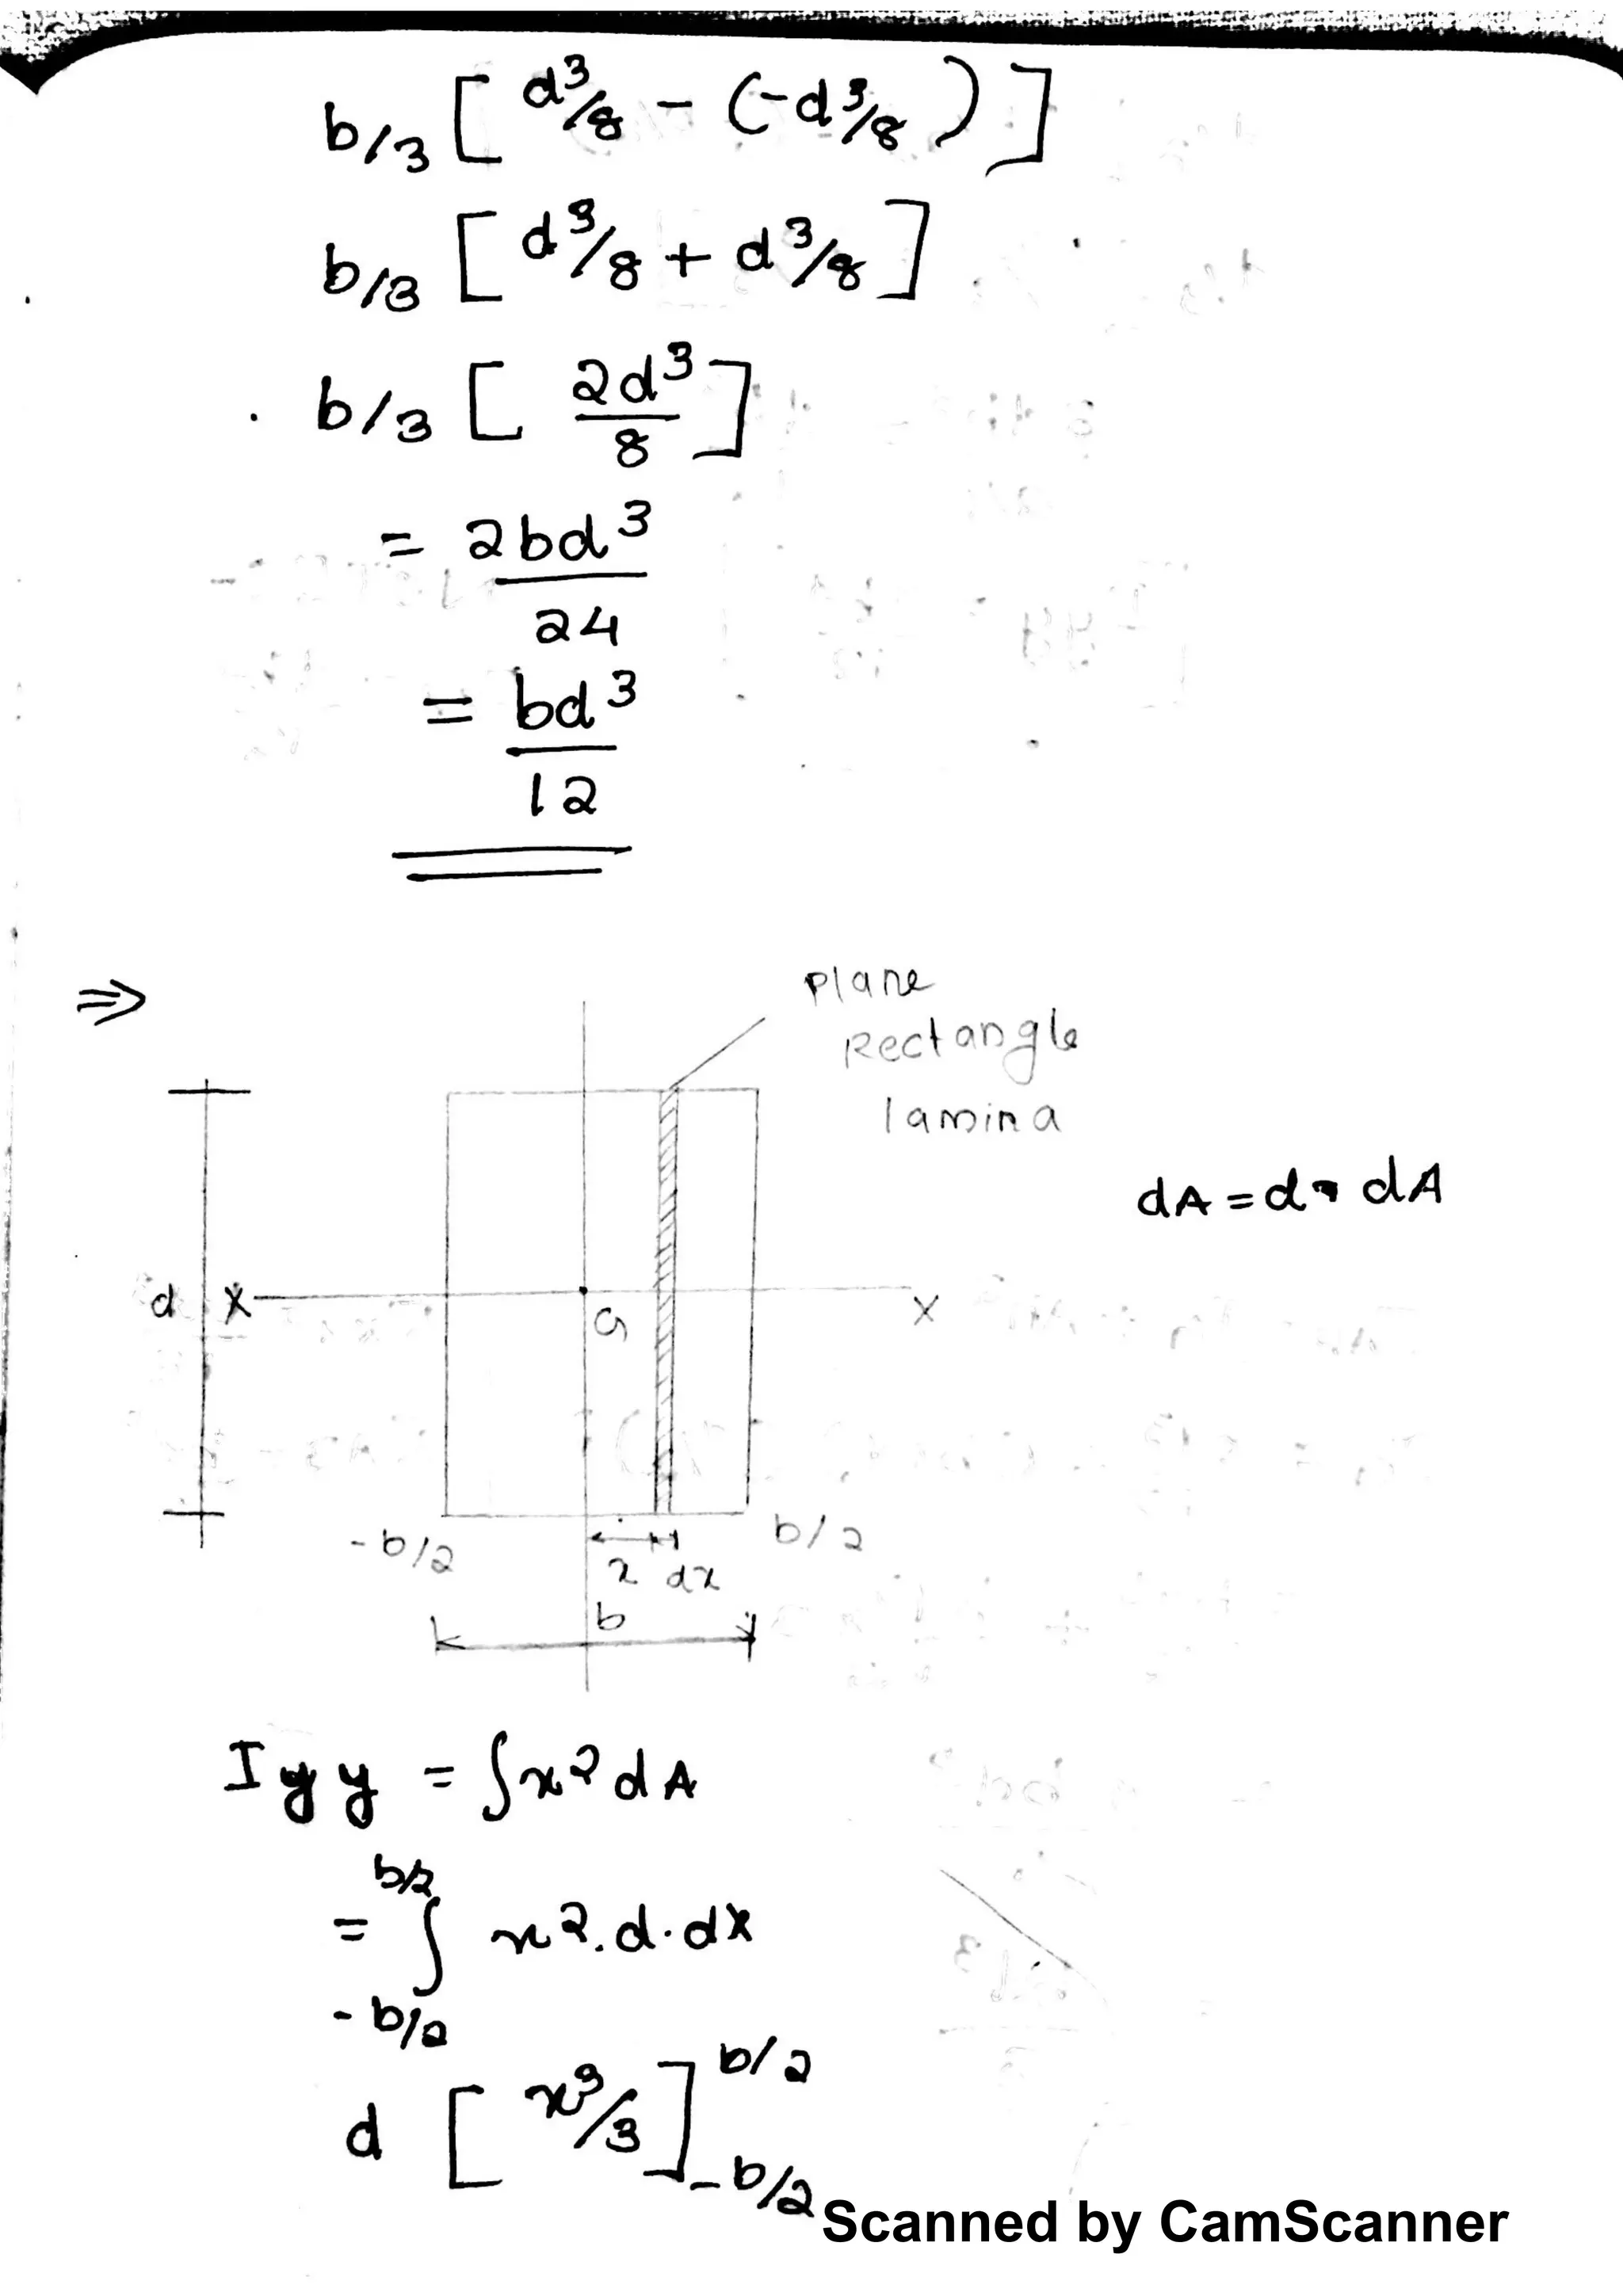 b/3 [ d³/8 - (-d³/8) ]
b/3 [ d³/8 + d³/8 ]
b/3 [ 2d³/8 ]
= 2bd³/24
= bd³/12
⇒
plane
Rectangle
lamina
dA = d · dA
d
X
G
X
-b/2
b/2
x dx
b
Iyy = ∫x² dA
= ∫_{-b/2}^{b/2} x². d. dx
d [ x³/3 ]_{-b/2}^{b/2}
Scanned by CamScanner